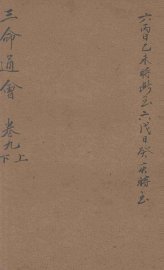 六丙日乙未時斷至六戊日癸亥時止
三命通會 卷九上下